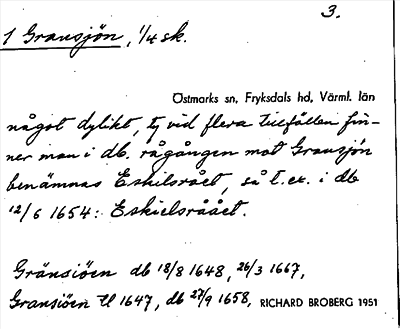 3.
1 Gransjön, 1/4 sk.
Östmarks sn, Fryksdals hd, Värml. län
något dylikt, ty vid flera tillfällen fin-
ner man i db. rågången mot Gransjön
benämnas Eskilsrået, så t.ex. i db
12/6 1654: Eskielsråået.
Gränsiöen db 18/8 1648, 26/3 1667,
Gransiöen tl 1647, db 27/9 1658, RICHARD BROBERG 1951